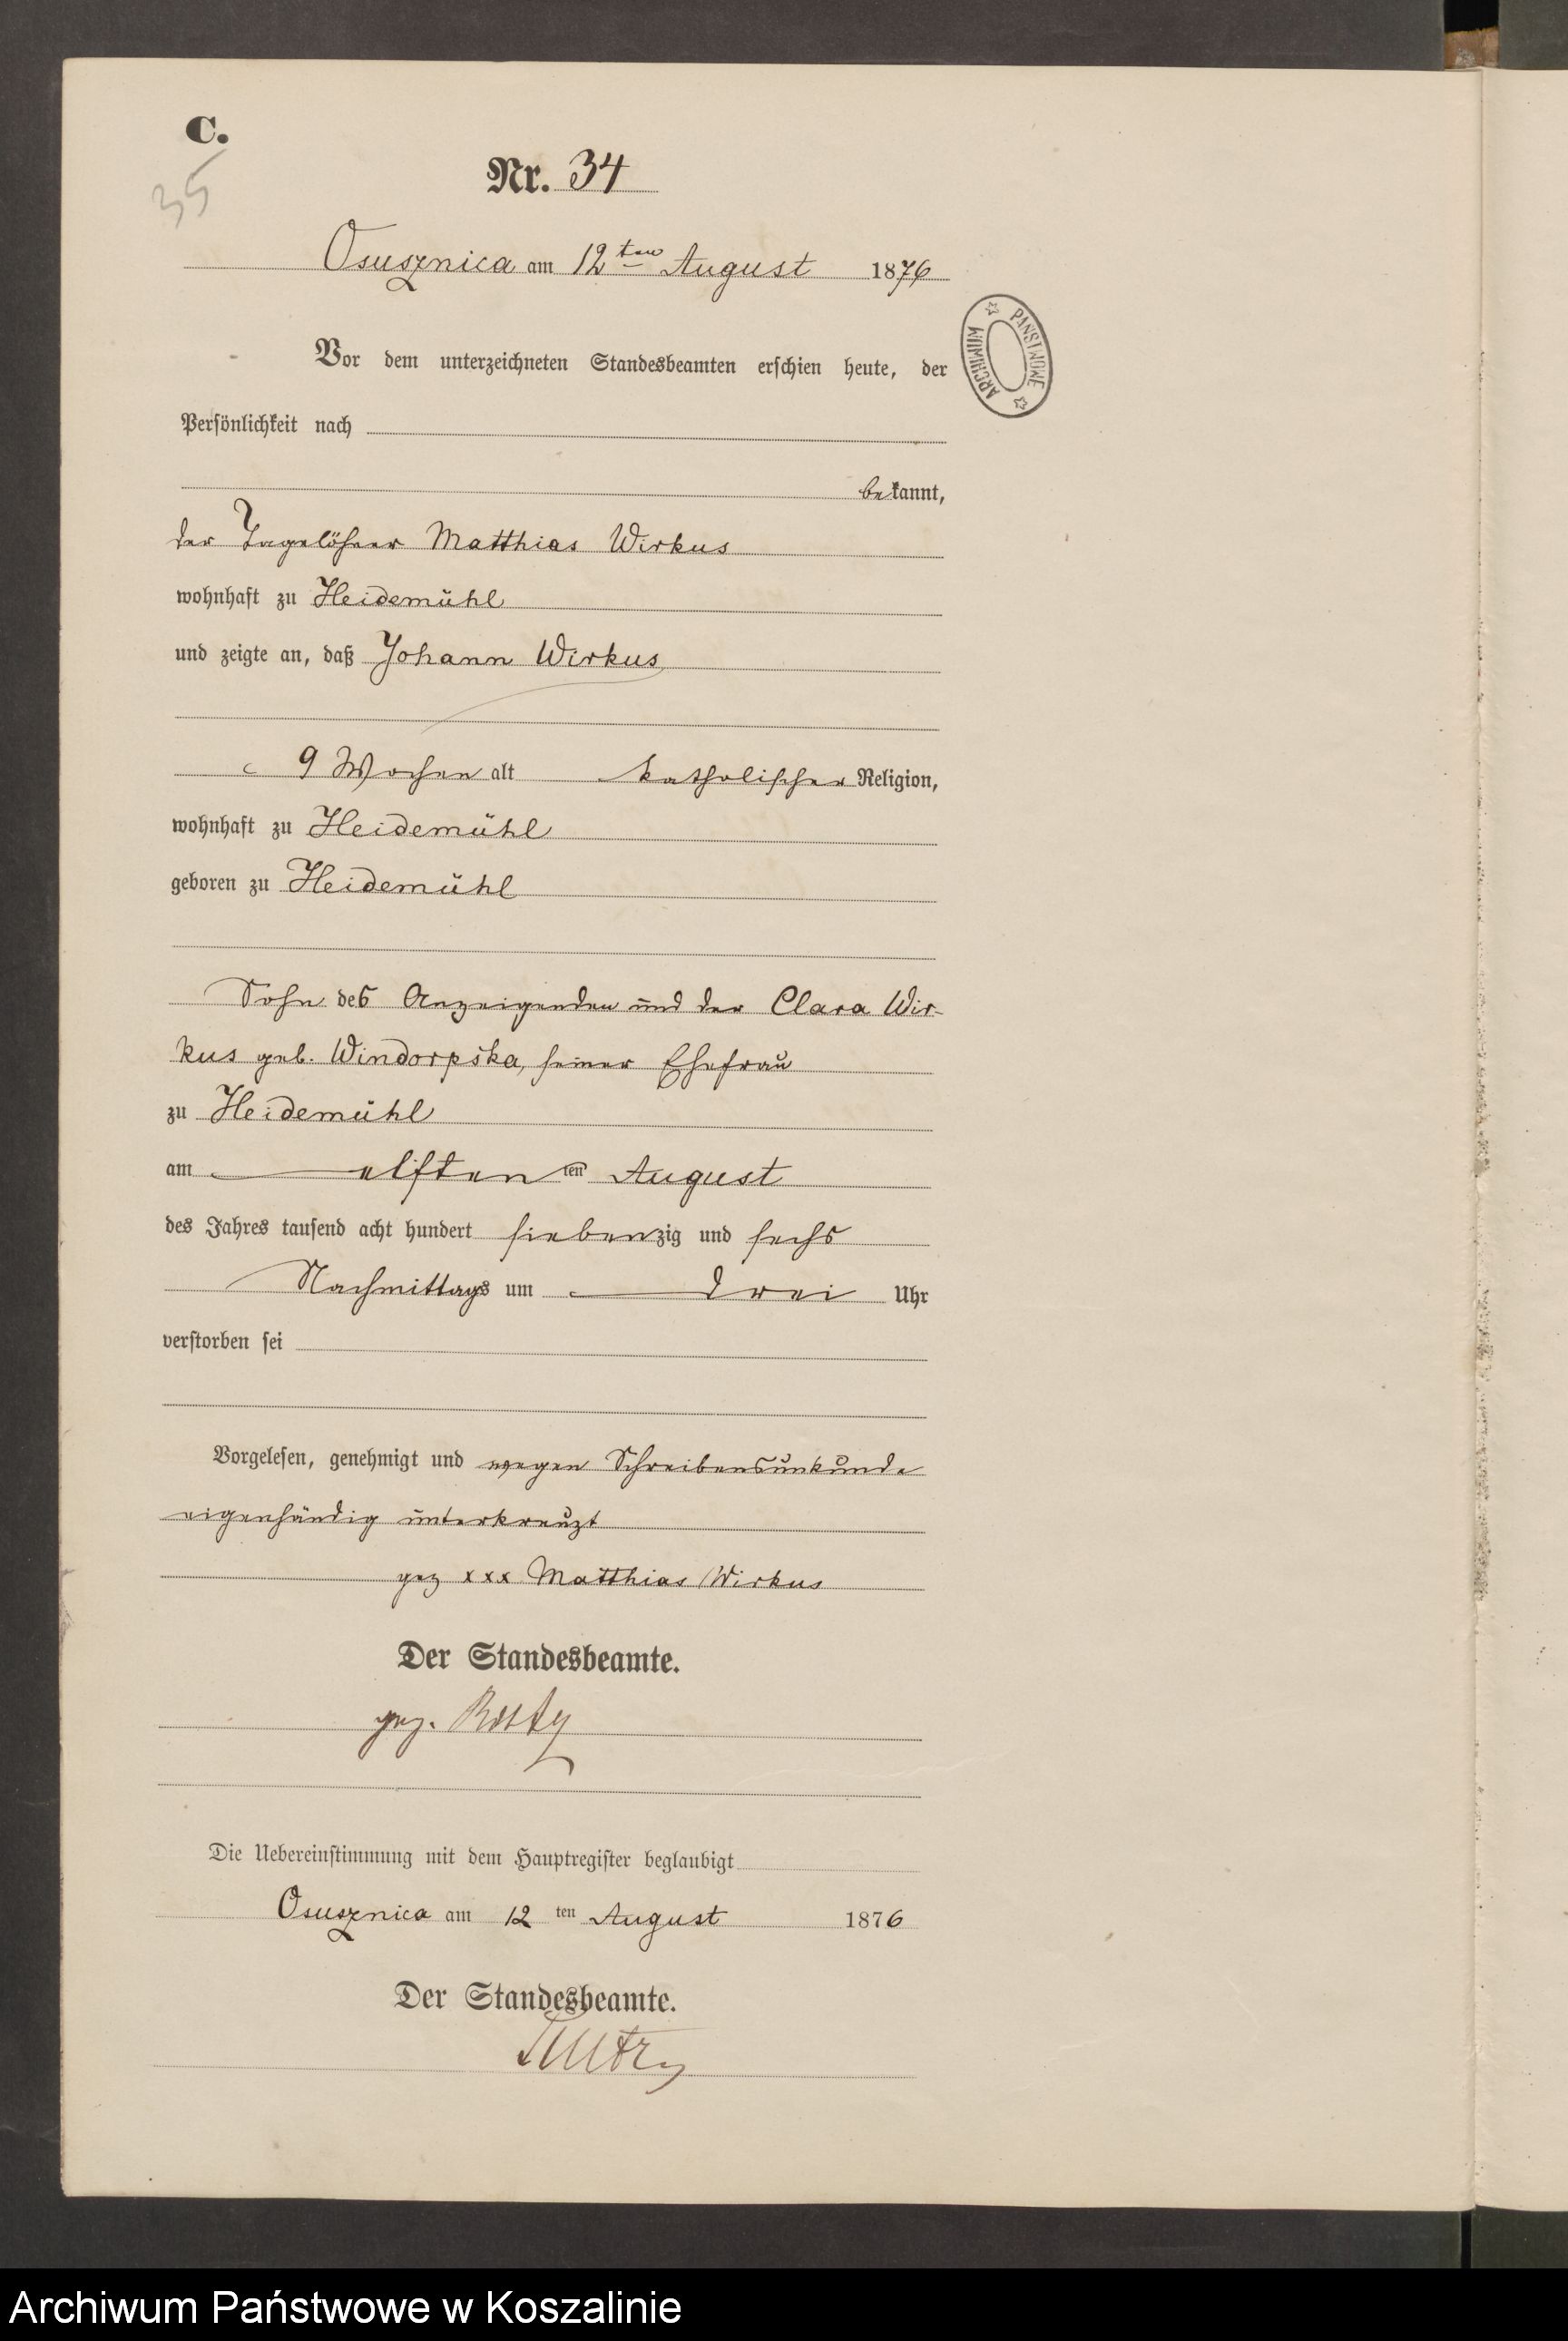 C.
35
Nr. 34
Osusznica am 12ten August 1876
Vor dem unterzeichneten Standesbeamten erschien heute, der
Persönlichkeit nach
bekannt,
der Tagelöhner Matthias Wirkus
wohnhaft zu Heidemühl
und zeigte an, daß Johann Wirkus
9 Wochen alt katholischer Religion,
wohnhaft zu Heidemühl
geboren zu Heidemühl
Sohn des Anzeigenden und der Clara Wir-
kus geb. Windorpska, seiner Ehefrau
zu Heidemühl
am elften ten August
des Jahres tausend acht hundert siebenzig und sechs
Nachmittags um drei Uhr
verstorben sei
Vorgelesen, genehmigt und wegen Schreibensunkunde
eigenhändig unterkreuzt
gez xxx Matthias Wirkus
Der Standesbeamte.
gez.
Die Uebereinstimmung mit dem Hauptregister beglaubigt
Osusznica am 12 ten August 1876
Der Standesbeamte.
ARCHIWUM PAŃSTWOWE
Archiwum Państwowe w Koszalinie